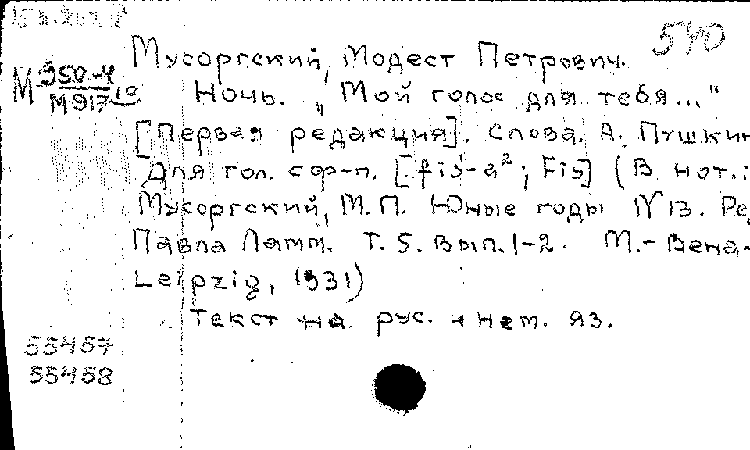 540
Мусоргский, Модест Петрович.
М 950-4
М917 Ночь. „Мой голос для тебя..."
[Первая редакция]. Слова. А. Пушкин
Для гол. с ф-п. [fis¹-a²; Fis] (В нот.:
Мусоргский, М.П. Юные годы N 13. Ре
Павла Ламм. Т. 5. Вып. 1-2. М.-Вена-
Leipzig, 1931)
Текст на рус. и нем. яз.
55457
55458